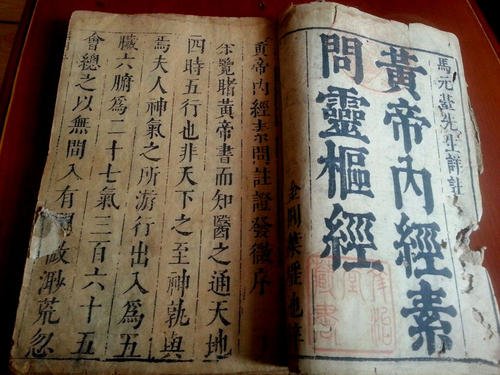 馬元臺先生詳註
黃帝內經素
問靈樞經
金閶葉
黃帝內經素問註證發微序
余覽睹黃帝書而知醫之通天地
四時五行也非天下之至神孰與
焉夫人神氣之所游行出入爲五
臟六腑爲二十七氣三百六十五
會總之以無間入有間故渺荒忽